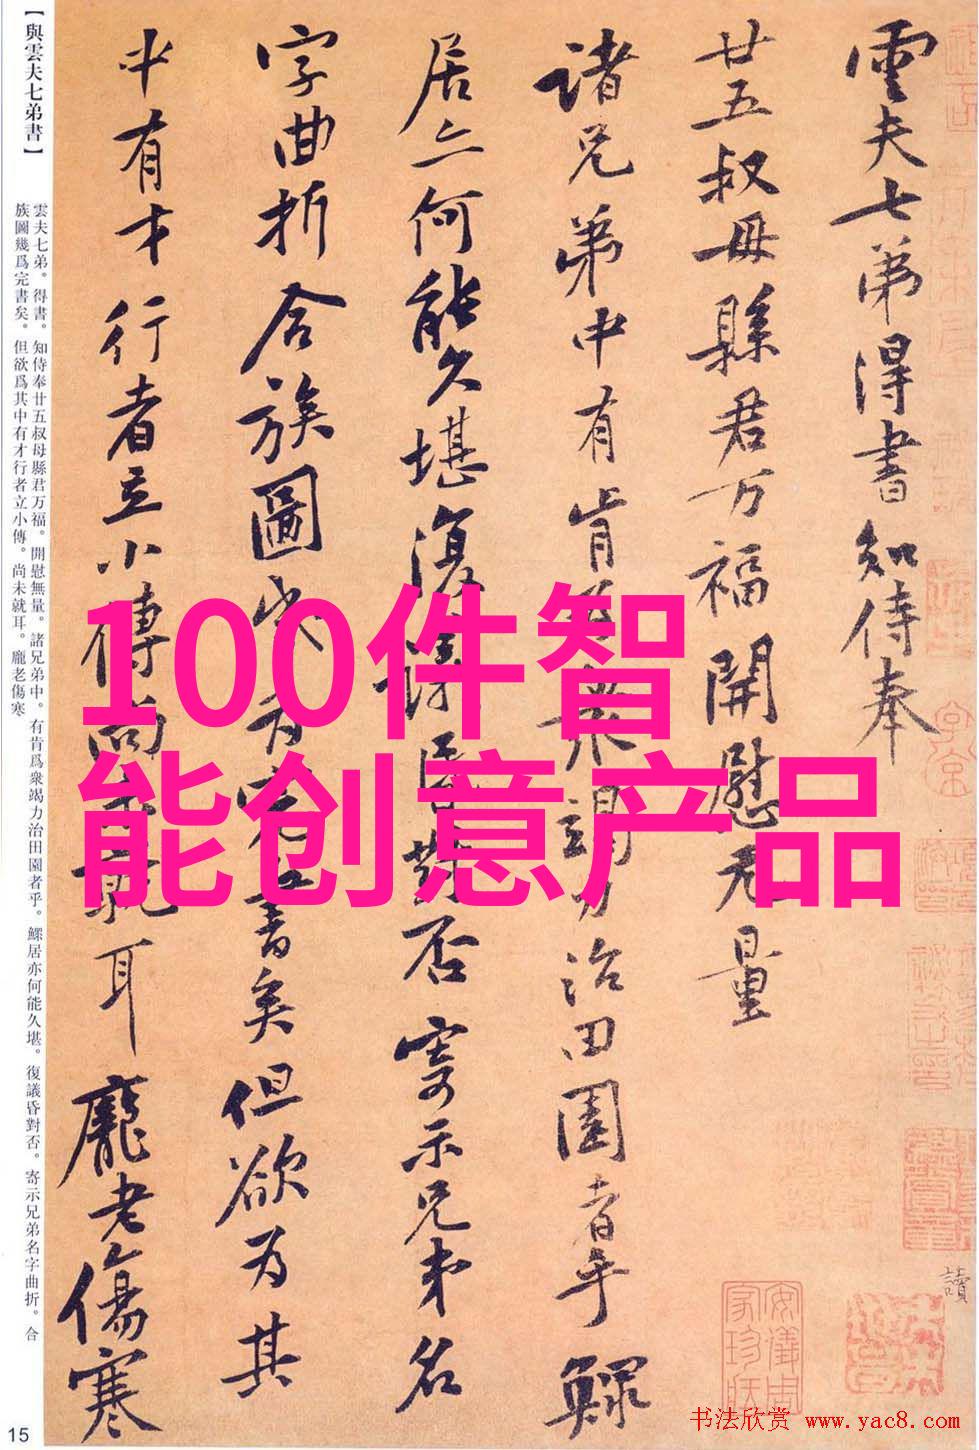 【與雲夫七弟書】
雲夫七弟。得書。知侍奉廿五叔母縣君万福。開慰無量。諸兄弟中。有肯爲衆竭力治田園者乎。鰥居亦何能久堪。復議昏對否。寄示兄弟名字曲折。合
族圖幾爲完書矣。但欲爲其中有才行者立小傳。尚未就耳。龐老傷寒
15
雲夫七弟得書知侍奉
廿五叔母縣君万福開慰无量
諸兄弟中有肯竭力治田園者乎鰥
居亦何能久堪復對否寄示兄弟名
字曲折合族圖書矣但欲为其
中有才行者立小傳尚就耳龐老傷寒
100件智
能创意产品
讀
安儀周
家珍藏
书法欣赏 www.yac8.com